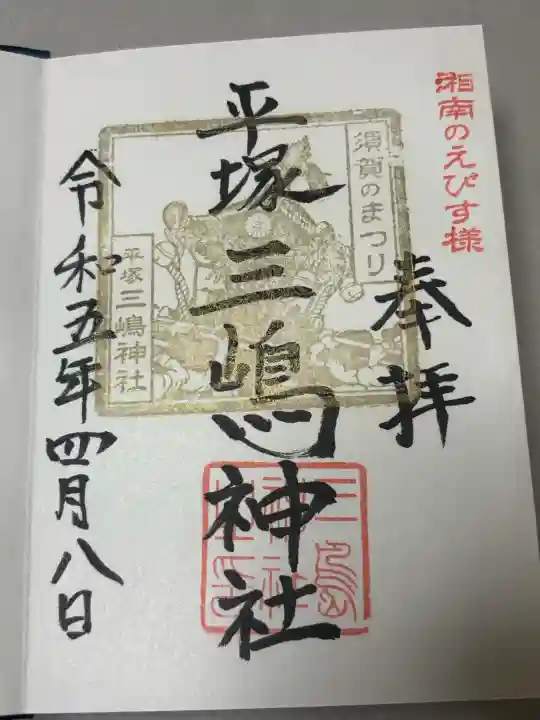 湘南のえびす様
奉拝
須賀のまつり
平塚三嶋神社
平塚
三嶋神社
令和五年四月八日